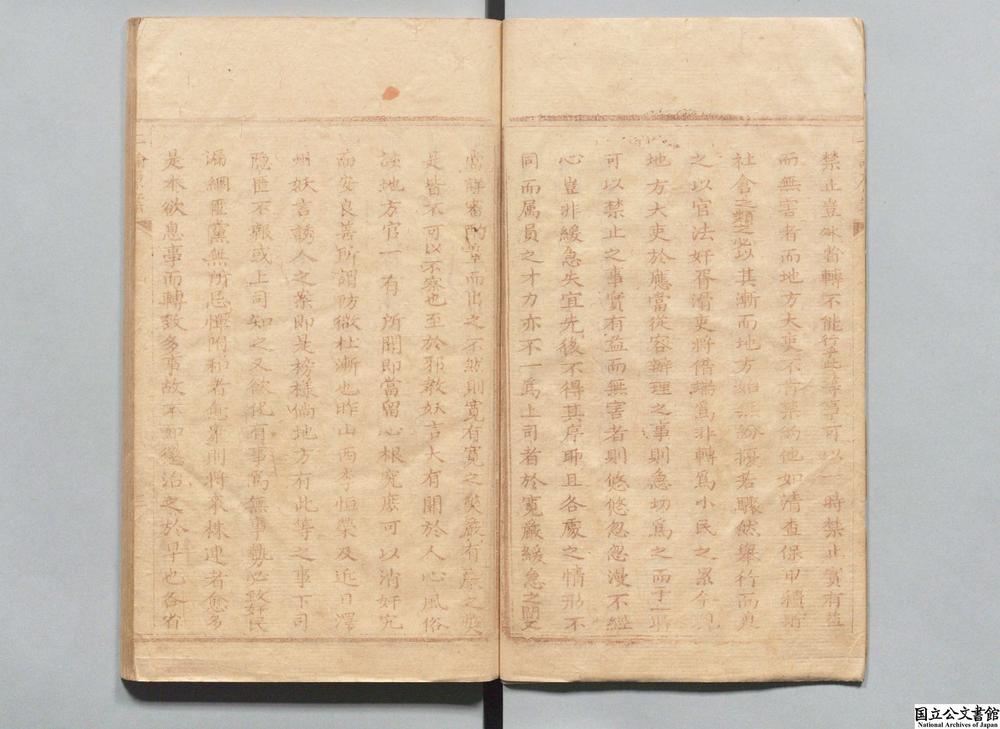 禁止豈
轉不能行
等事可以一時禁止實有益
而無害者而地方大吏不肯禁約他如清查保甲積貯
社倉之類之必以其漸而地方始無紛擾若驟然舉行而責
之以官法奸胥滑吏將借端爲非轉爲小民之累今現
地方大吏於應當從容辦理之事則急切爲之而于一時
可以禁止之事實有益而無害者則悠悠忽忽漫不經
心豈非緩急失宜先後不得其序耶且各處之情形不
同而属員之才力亦不一爲上司者於寬嚴緩急之間又
當詳審
而出之不然則寬有寬之獘嚴有嚴之獘
是皆不可以不察也至於邪教妖言大有關於人心風俗
該地方官一有所聞即當留心根究庶可以消奸宄
而安良善所謂防微杜漸也昨山西李恒榮及近日澤
州妖言誘人之案即是榜樣倘地方有此等之事下司
隐匿不報或上司知之又欲化有事爲無事勢必致奸民
漏網匪黨無所忌憚附和者愈衆則將來株連者愈多
是本欲息事而轉致多事故不如懲治之於早也各省
国立公文書館
National Archives of Japan